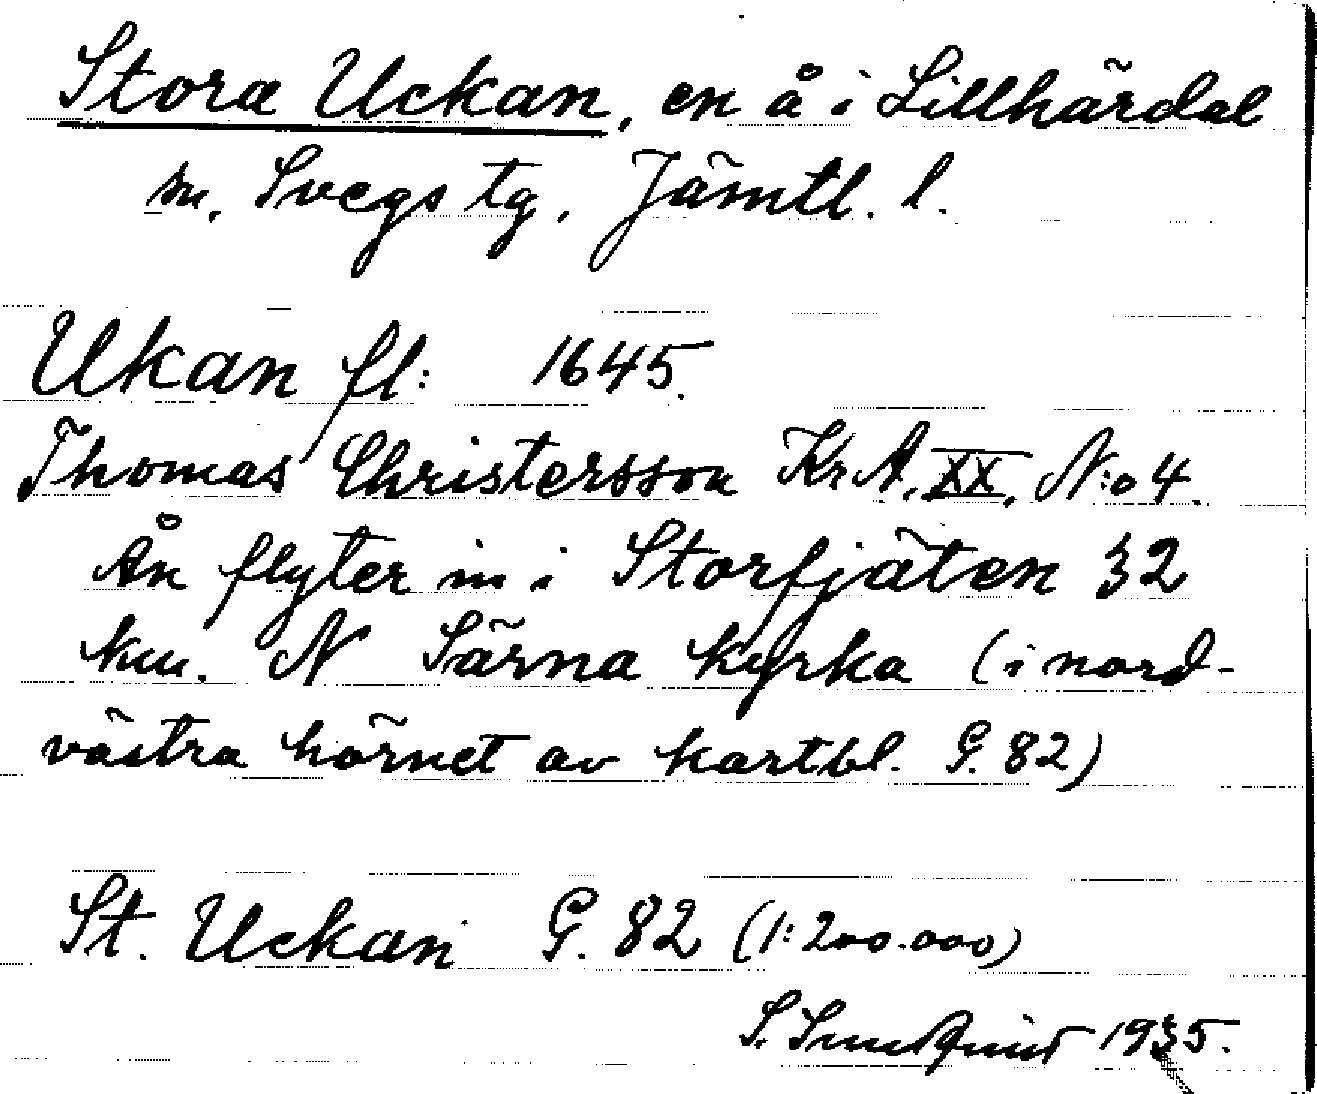 Stora Uckan, en å i Lillhärdal
sn. Svegs tg. Jämtl. l.
Ukan fl: 1645.
Thomas Christersson Kr A. XX, N:o 4.
Ån flyter in i Storfjäten 32
km. N Särna kyrka (i nord-
västra hörnet av kartbl. G. 82)
St. Uckan G. 82 (1:200.000)
S. Sundquist 1935.